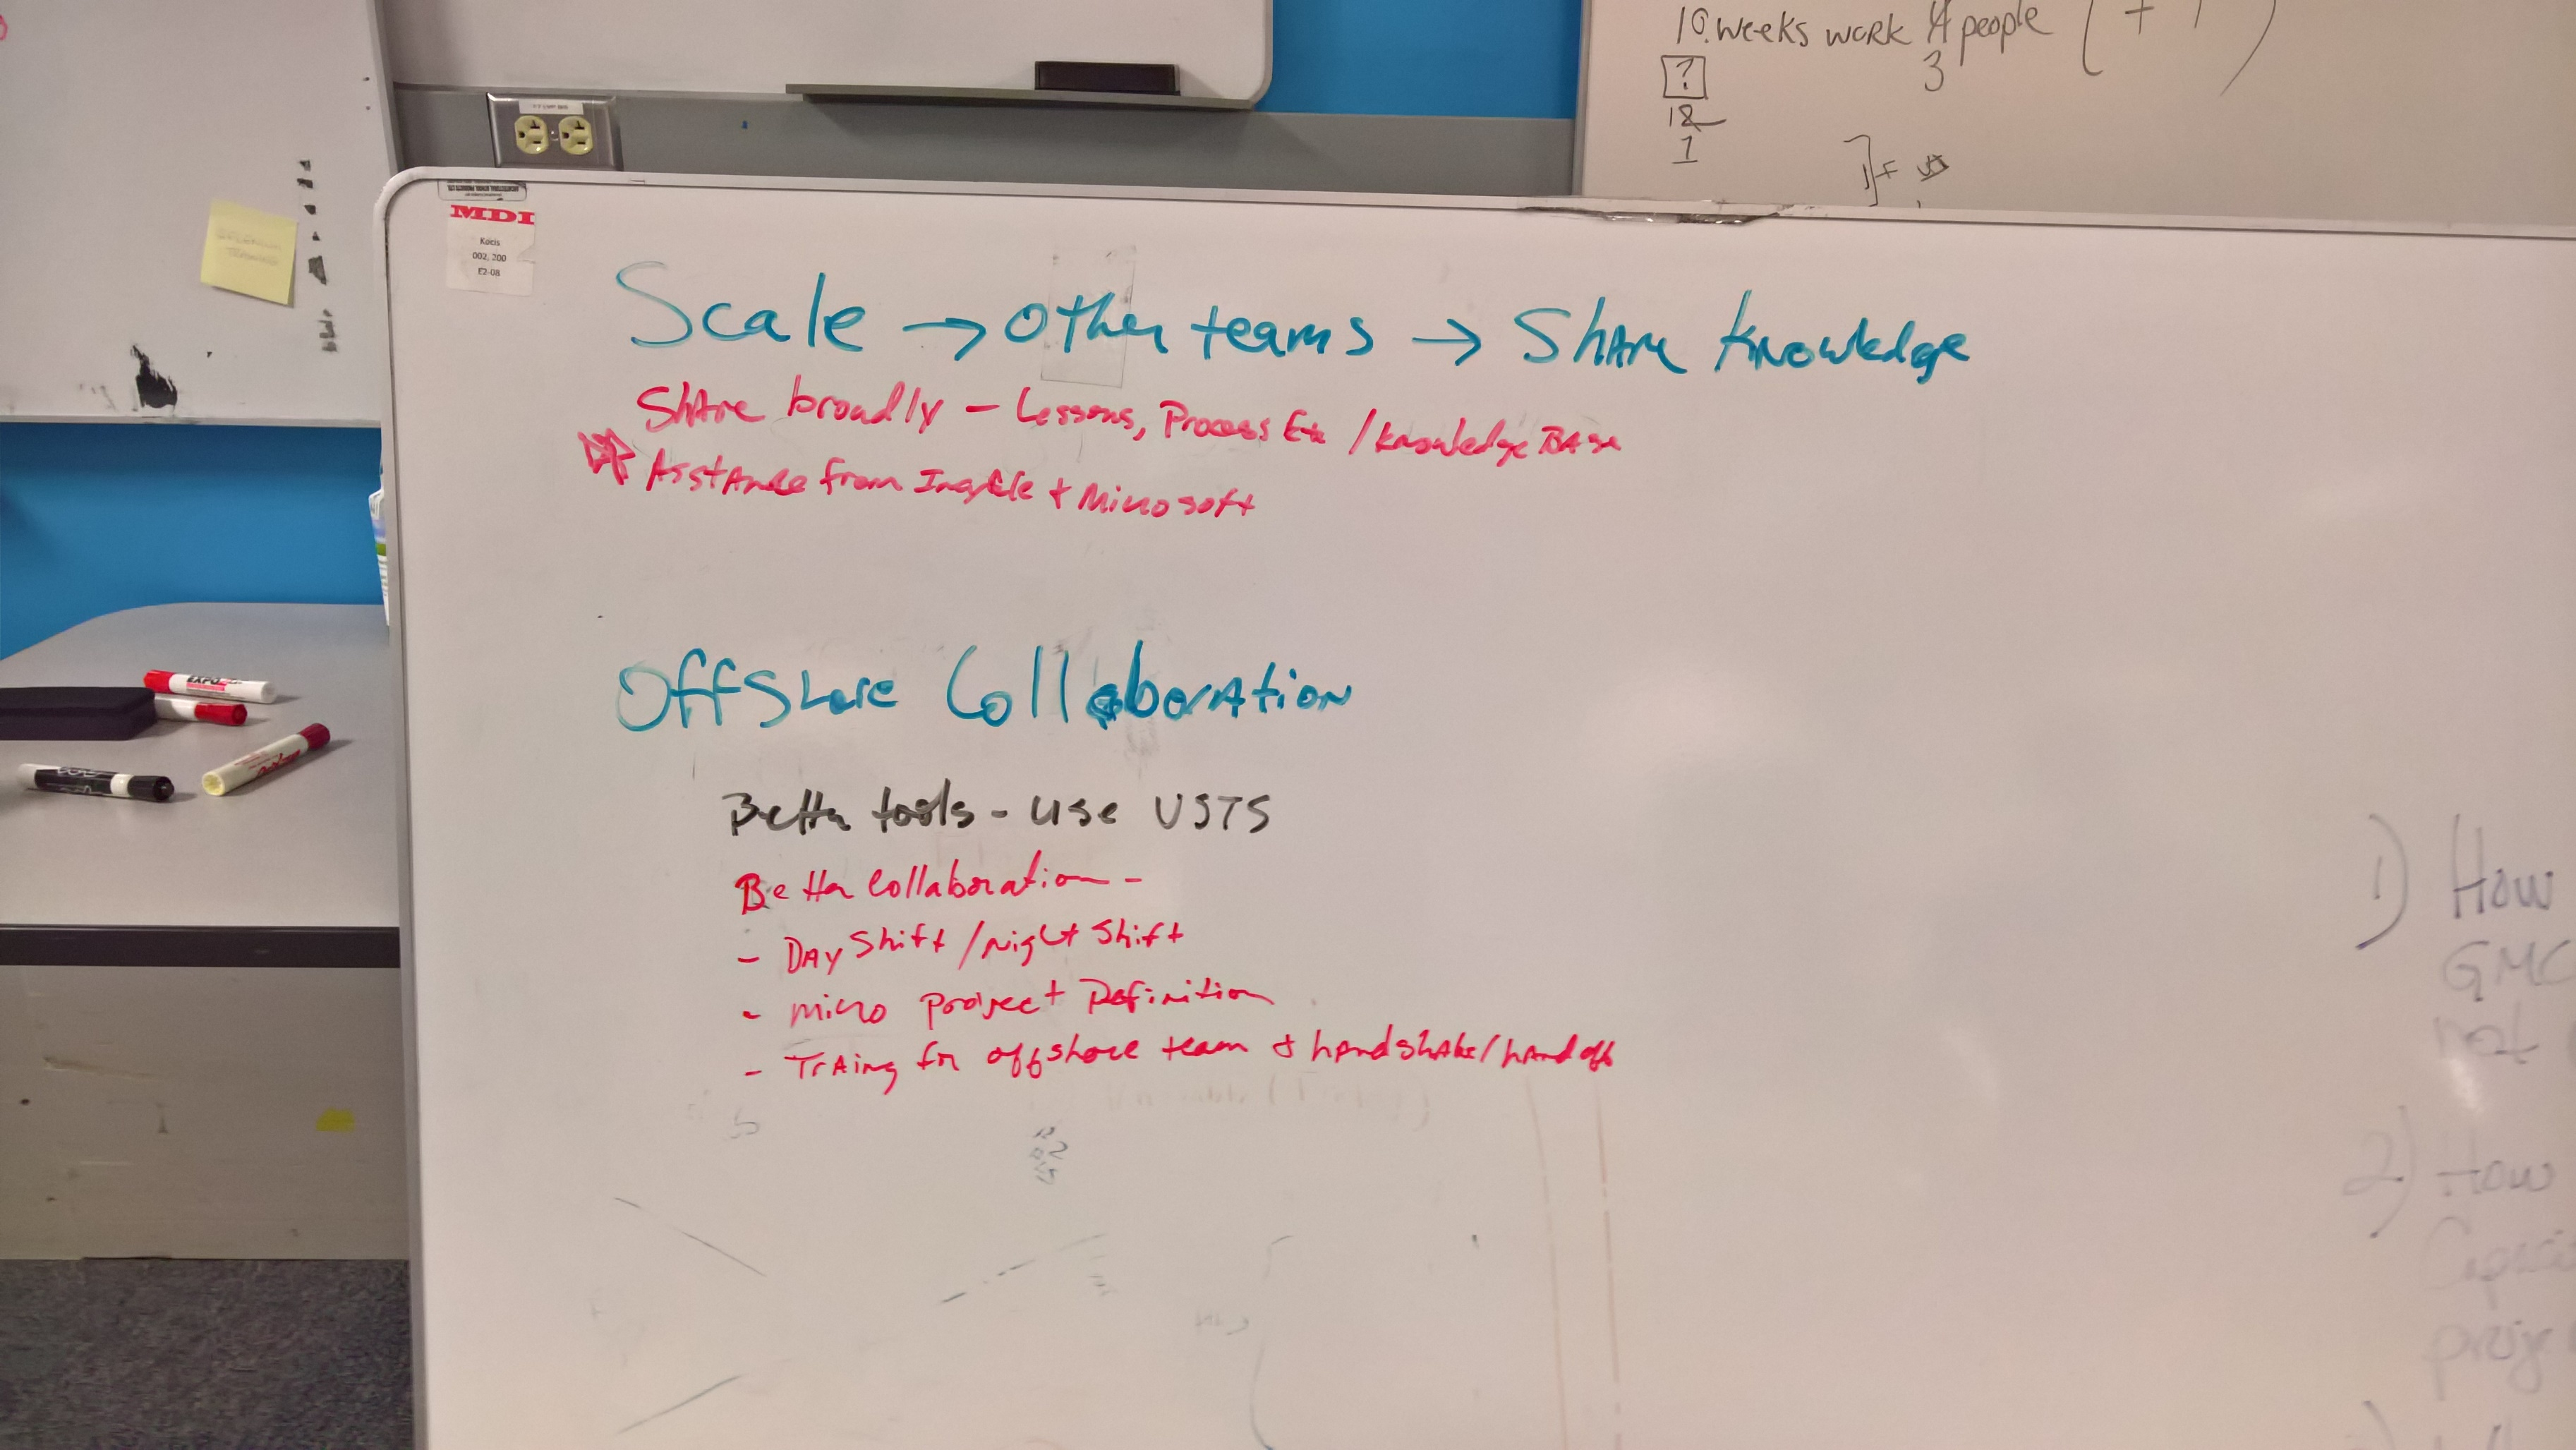 10 weeks work 4 people ( + 1 )
3
?
18
1
MDI
Kocis
002, 200
E2-08
Scale → Other teams → Share Knowledge
Share broadly - Lessons, Process Etc / Knowledge Base
Asstance from + Microsoft
Offshore Collaboration
Better tools - use VSTS
EXPO
Better Collaboration -
- Day Shift / Night Shift
- micro project Definition
- Traing for offshore team + handshake/handoff
1) How
GMC
not
2) How
Capaci
proje